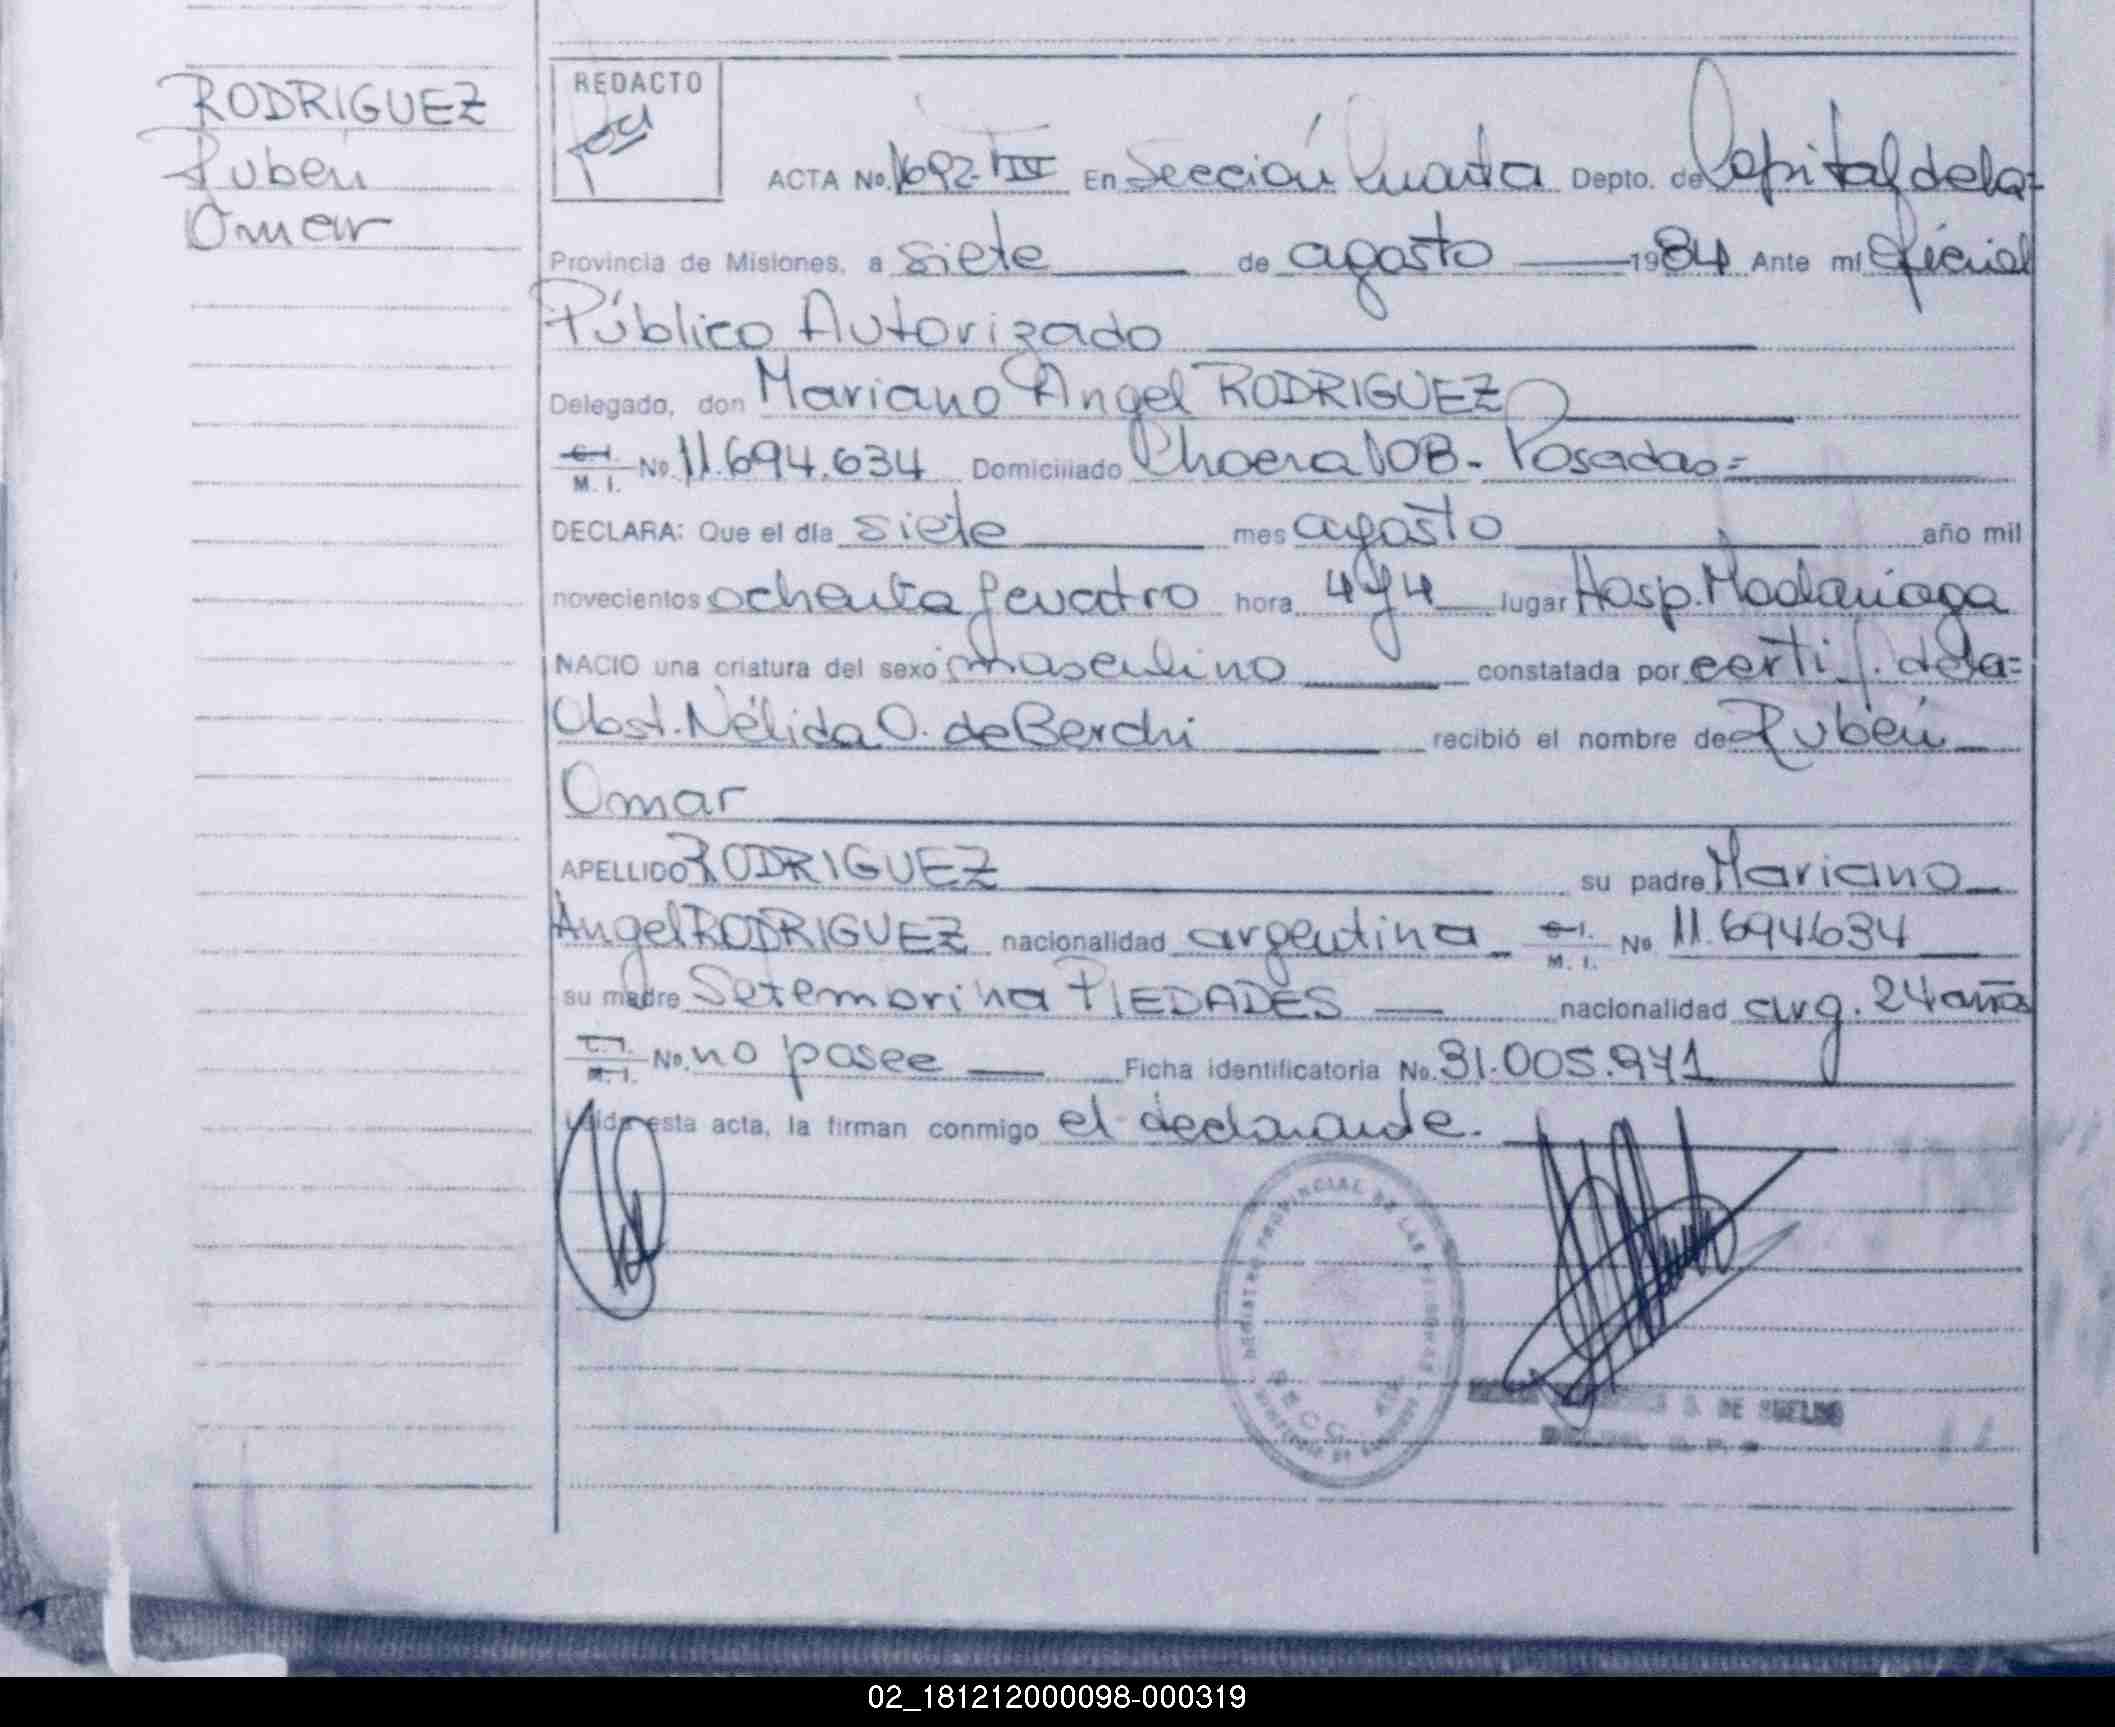 RODRIGUEZ
Rubén
Omar
REDACTO
ACTA No. 1692-T°IV En Sección Cuarta Depto. de Capital de la-
Provincia de Misiones, a siete de agosto 1984 Ante mí Oficial
Público Autorizado
Delegado, don Mariano Angel RODRIGUEZ
C.I. M. I. No. 11.694.634 Domiciliado Chacra 108- Posadas=
DECLARA: Que el día siete mes agosto año mil
novecientos ochenta y cuatro hora 4 y 4 lugar Hosp. Madariaga
NACIO una criatura del sexo masculino constatada por certif. de la=
Obst. Nélida O. de Berchi recibió el nombre de Rubén
Omar
APELLIDO RODRIGUEZ su padre Mariano
Angel RODRIGUEZ nacionalidad argentina C.I. M. I. No 11.694634
su madre Setembrina PIEDADES nacionalidad arg. 24 años
C.I. M.I. No. no posee Ficha identificatoria No. 31.005.971
Leída esta acta, la firman conmigo el declarante.
REGISTRO PROVINCIAL DE LAS PERSONAS
SECC. 4ta.
MINISTERIO DE GOBIERNO
DE SUELDO
02_181212000098-000319